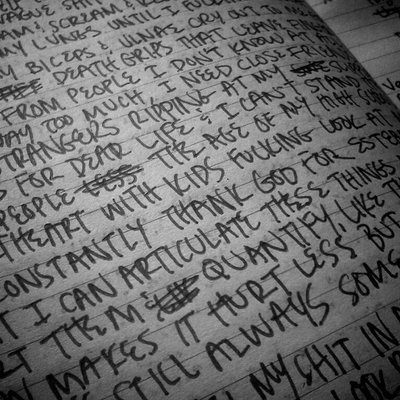 VAGUE SH
AM & SCREAM &
MY LUNGS UNTIL
BICEPS & ULNAE CRY OUT IN
DEATH GRIPS THAT LEAVE
FROM PEOPLE I DON'T KNOW AT
WAY TOO MUCH. I NEED CLOSE FRIEN
STRANGERS RIPPING AT MY
FOR DEAR LIFE & I CAN'T STAND
PEOPLE THE AGE OF MY
HEART WITH KIDS FUCKING LOOK AT
CONSTANTLY THANK GOD FOR
T I CAN ARTICULATE THESE THINGS
RT THEM & QUANTIFY, LIKE TH
MAKES IT HURT LESS BUT
STILL ALWAYS SOME
MY SHIT IN
LOOK